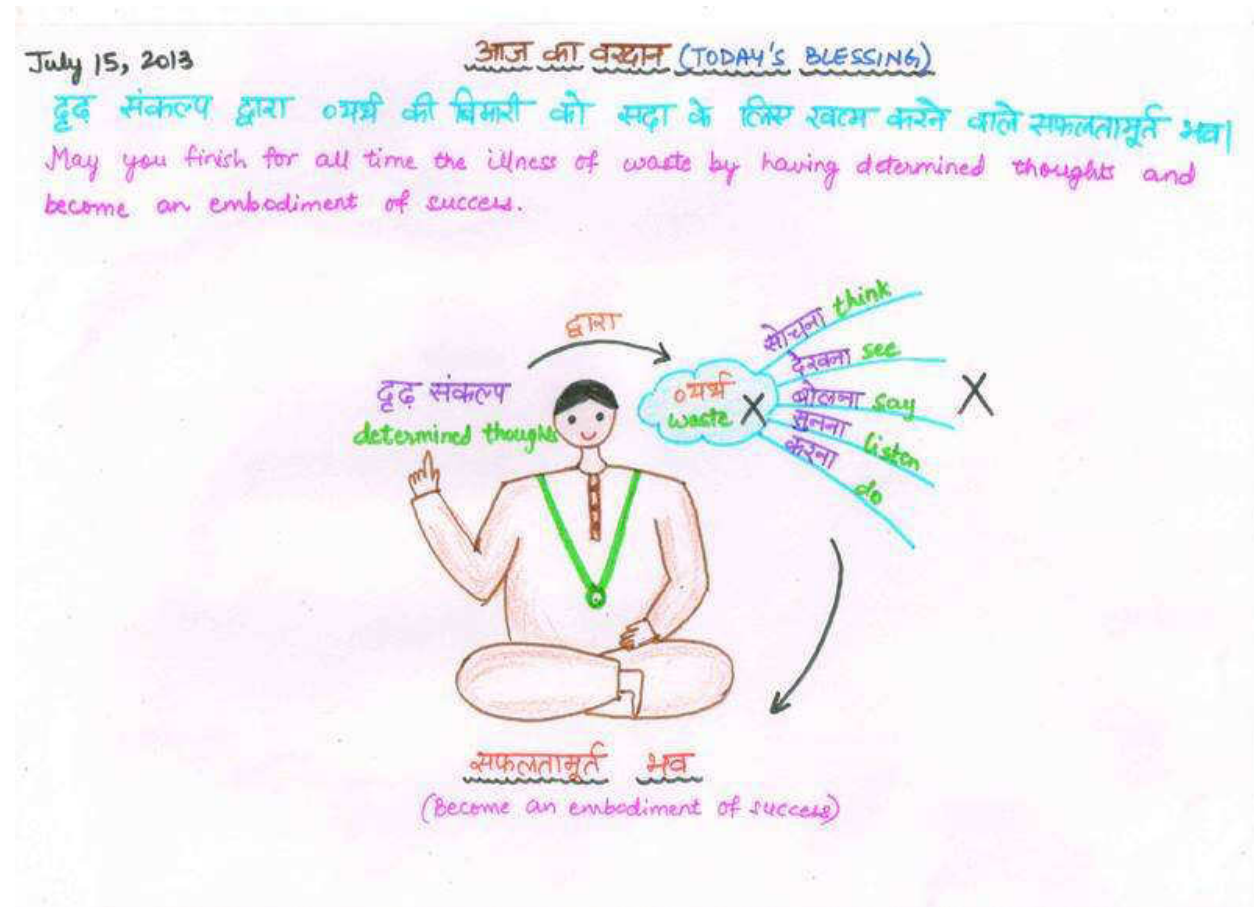 July 15, 2013
आज का वरदान (TODAY'S BLESSING)
दृढ़ संकल्प द्वारा व्यर्थ की बिमारी को सदा के लिए खत्म करने वाले सफलतामूर्त भव।
May you finish for all time the illness of waste by having determined thoughts and
become an embodiment of success.
द्वारा
दृढ़ संकल्प
determined thoughts
व्यर्थ
waste X
सोचना think
देखना see
बोलना say
सुनना listen
करना do
X
सफलतामूर्त भव
(Become an embodiment of success)